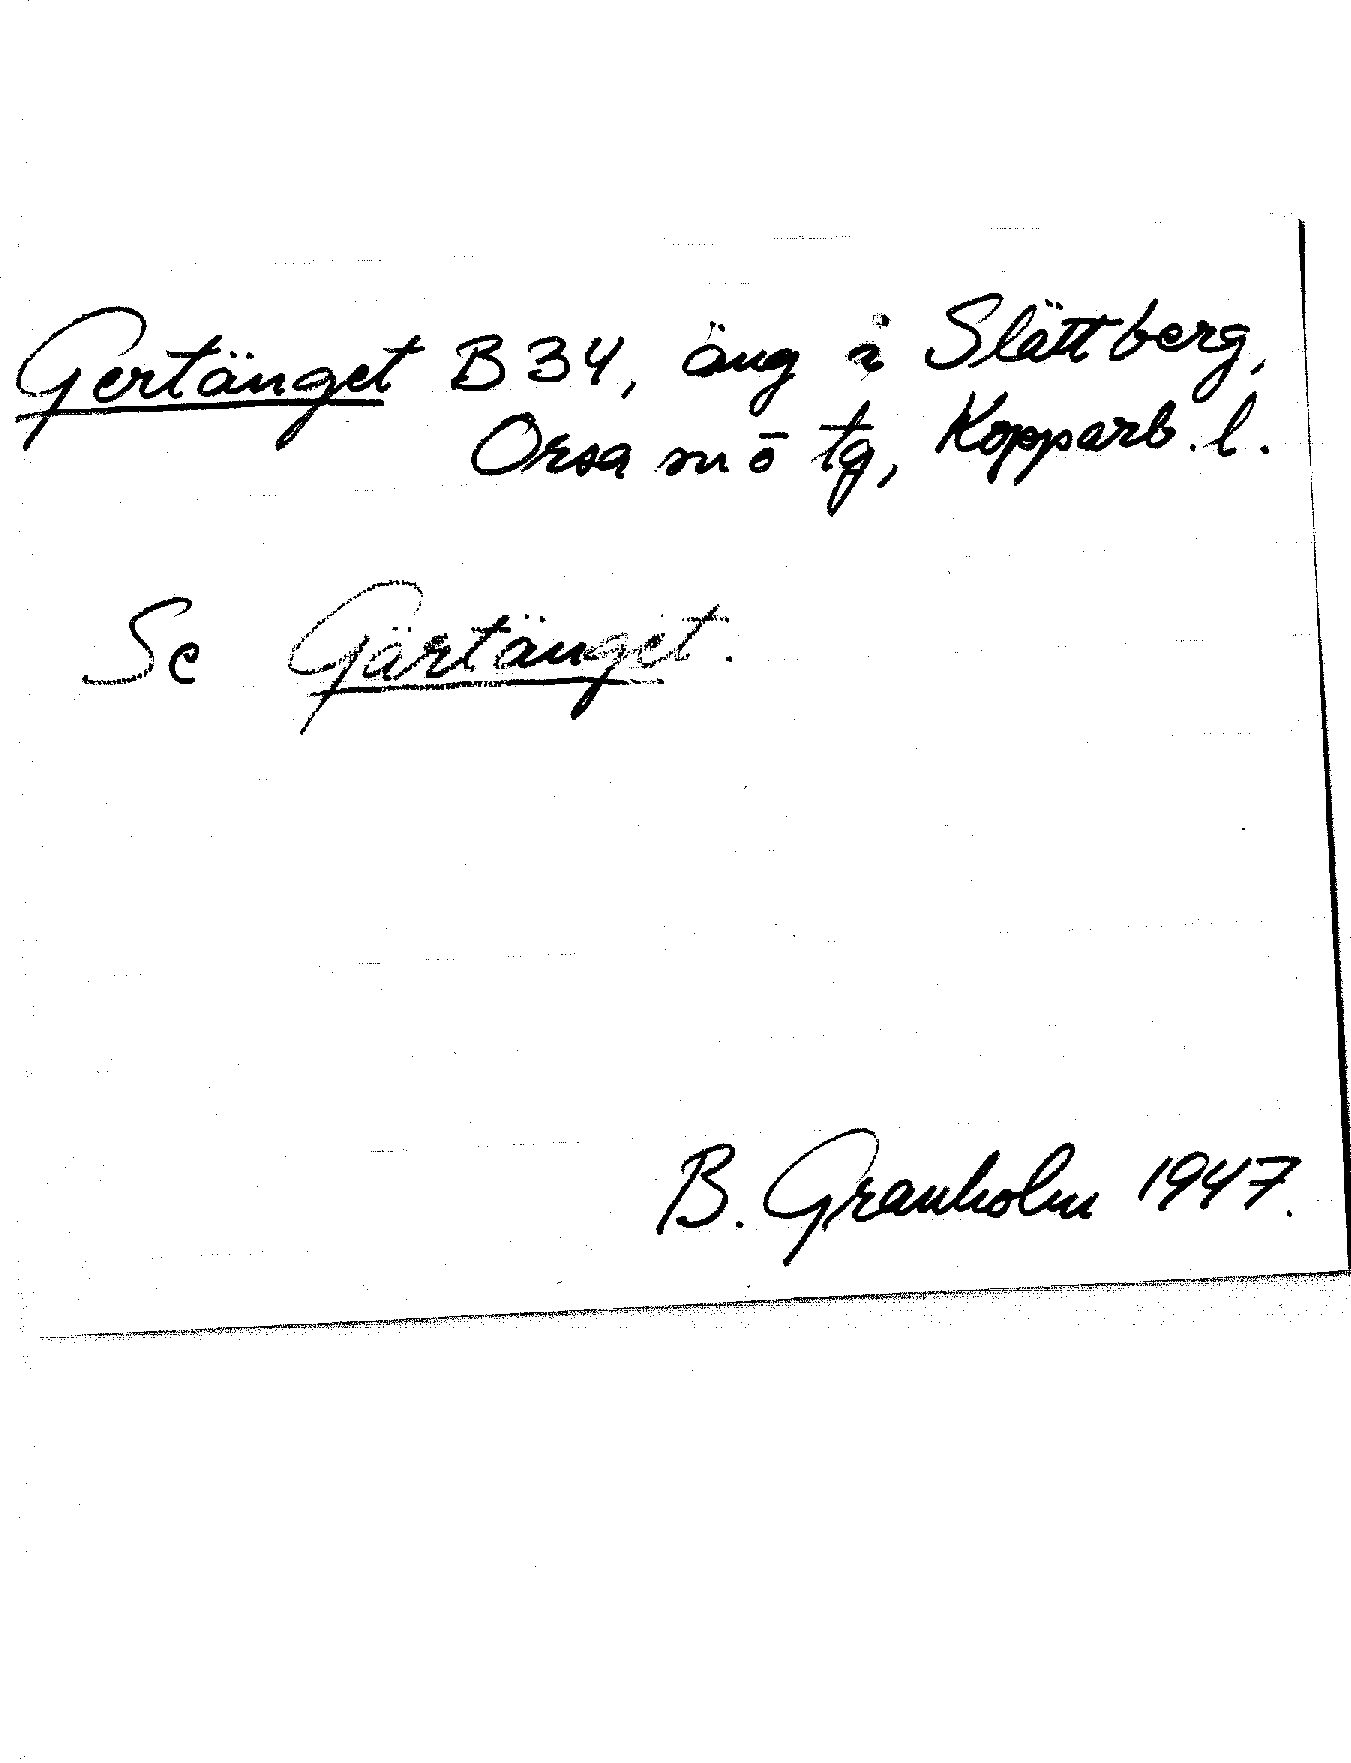 Gertänget B 34, äng i Slättberg,
Orsa sn ö tg, Kopparb. l.
Se Gärtänget.
B. Granholm 1947.